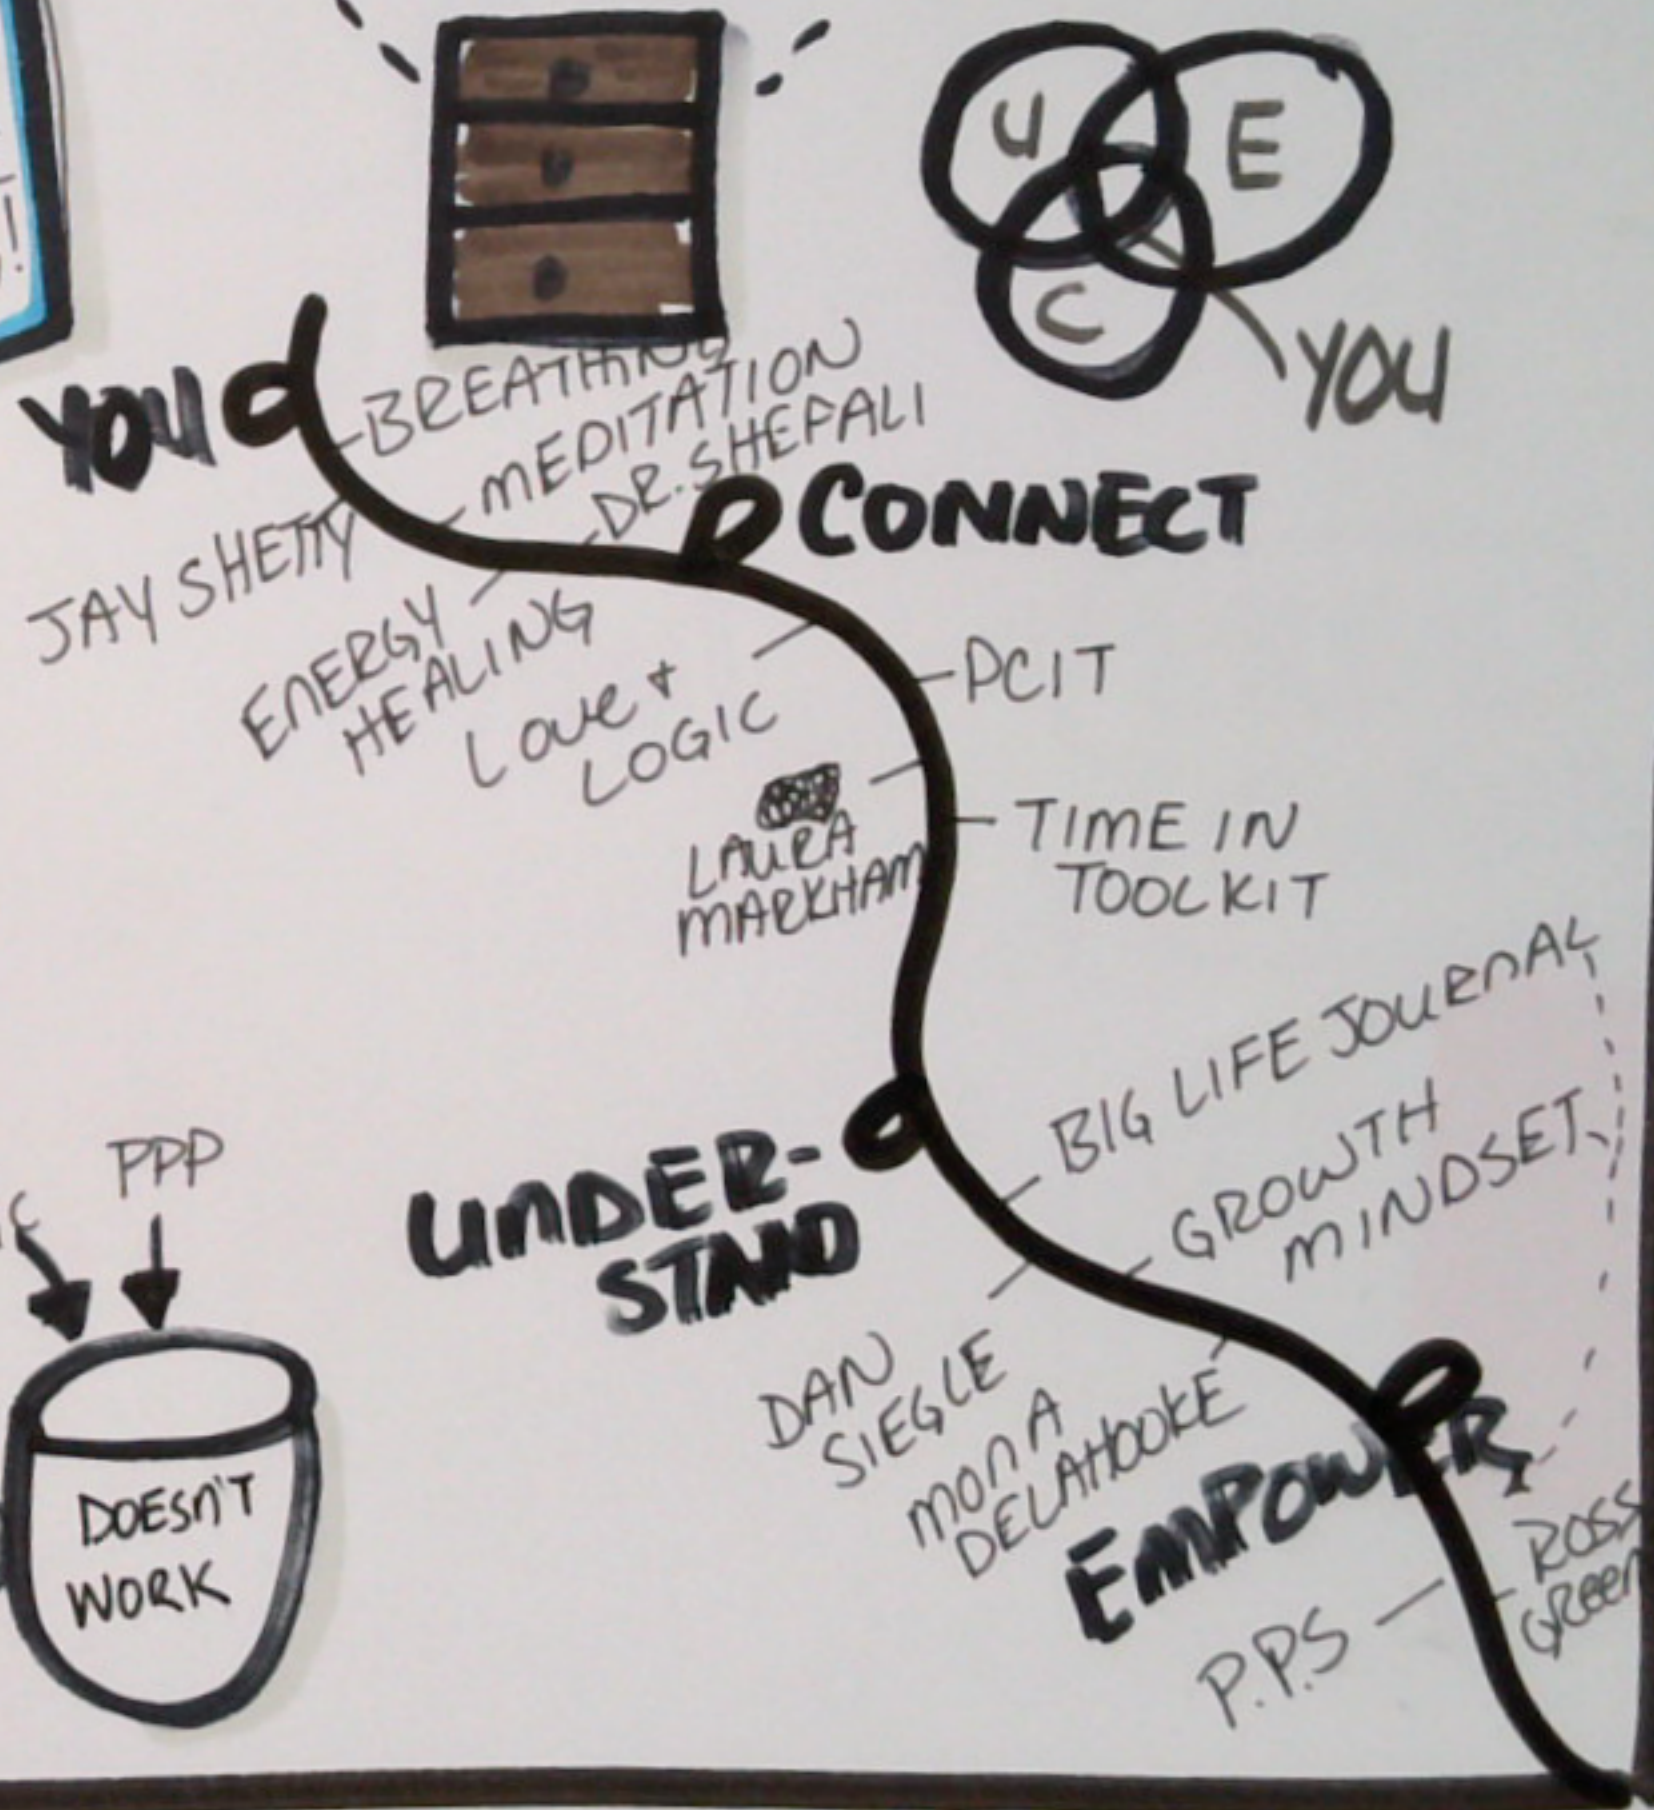 !
U
E
C
YOU
YOU
BREATHING
MEDITATION
DR. SHEFALI
JAY SHETTY
ENERGY
HEALING
CONNECT
LOVE +
LOGIC
PCIT
LAURA
MARKHAM
TIME IN
TOOLKIT
BIG LIFE JOURNAL
GROWTH
MINDSET
UNDER-
STAND
DAN
SIEGLE
MONA
DELAHOOKE
EMPOWER
ROSS
GREEN
P.P.S
PPP
DOESN'T
WORK